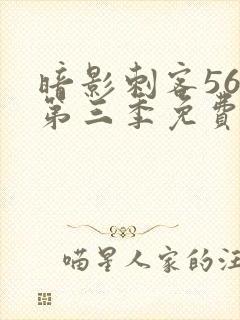 暗影刺客56
第三季免費
喵星人家的汪